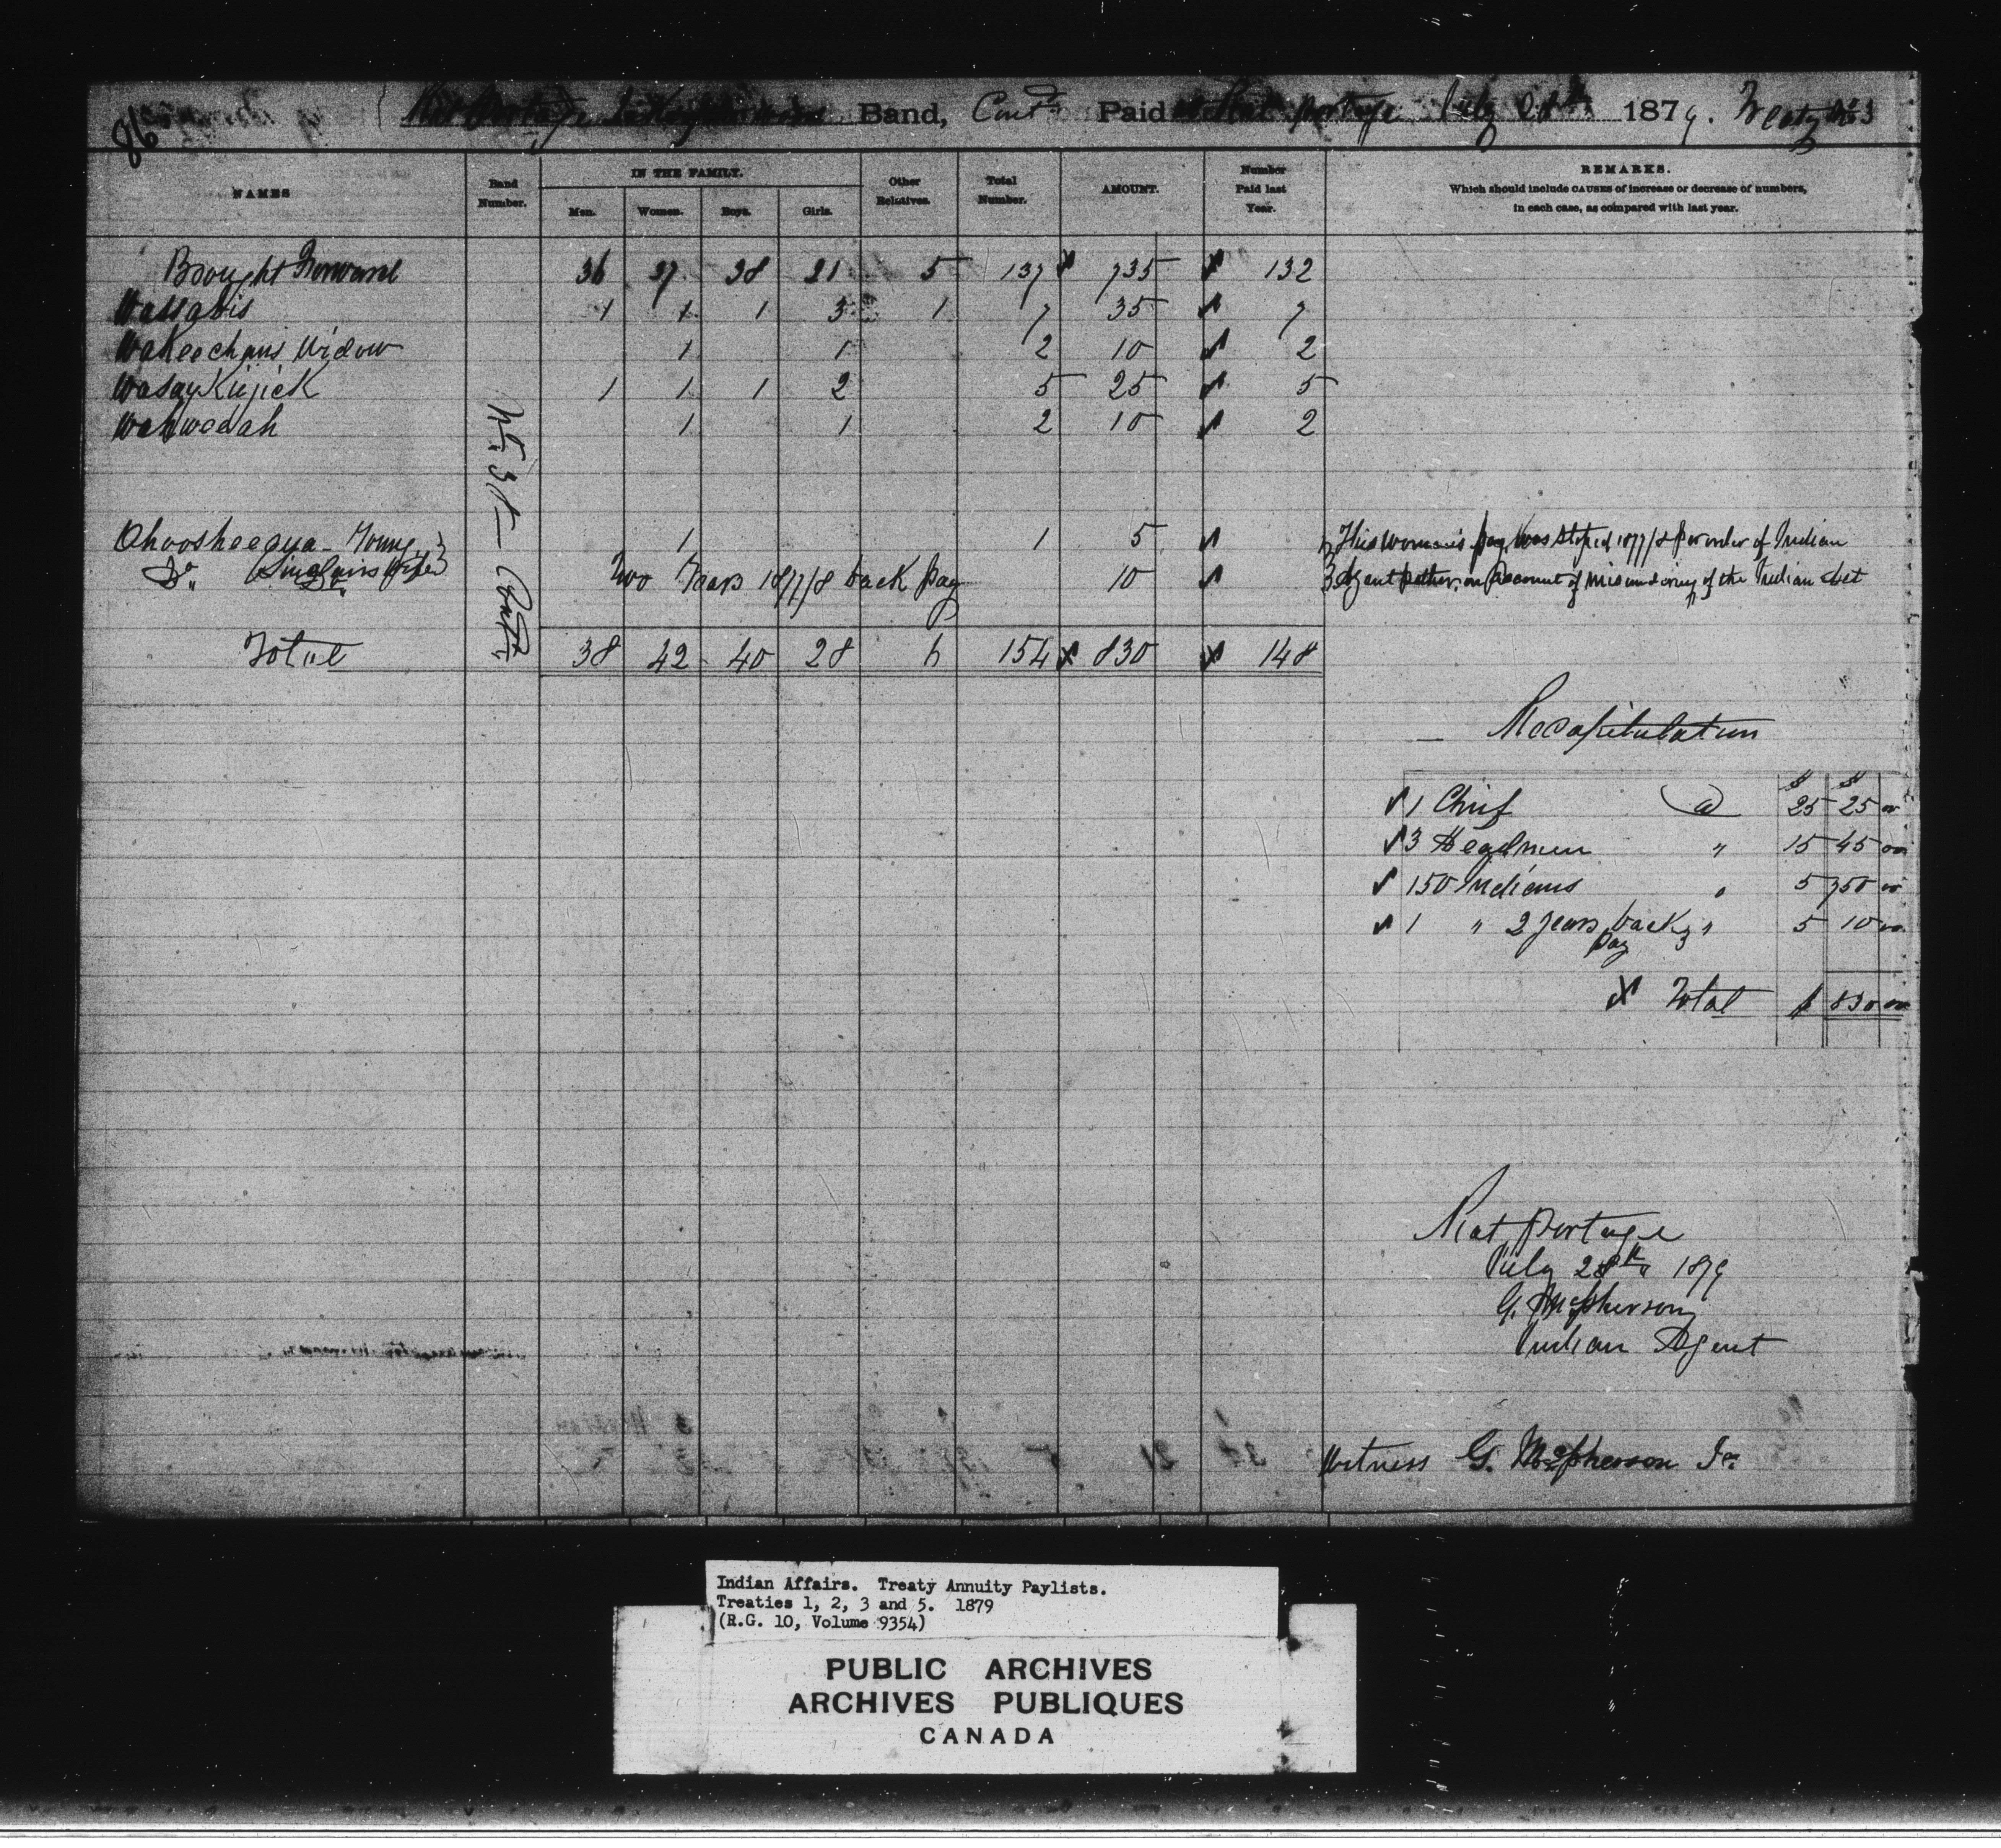 86
Rat Portage Band, Contd Paid at Rat Portage July 28th 1879. Treaty No 3
NAMES Band Number. IN THE FAMILY. Men. Women. Boys. Girls. Other Relatives. Total Number. AMOUNT. Number Paid last Year. REMARKS.
Which should include CAUSES of increase or decrease of numbers,
in each case, as compared with last year.
Brought Forward 36 37 38 21 5 137 735 132
Wassabis 1 1 1 3 1 7 35 7
Wakeechans Widow 1 1 2 10 2
WasayKiejick 1 1 1 2 5 25 5
Wahwedah 1 1 2 10 2
No. 31 Contd
Ohoosheegya - Young 1 1 5 This woman's pay was stoped 1877/8 per order of Indian
Do. Sinclairs Wife Two Years 1877/8 back pay 10 Agent Pether on Account of of the Indian Act
Total 38 42 40 28 6 154 830 148
Recapitulation
$ $
1 Chief @ 25 25 00
3 Headmen " 15 45 00
150 Indians " 5 750 00
1 " 2 years back pay " 5 10 00
Total $ 830 00
Rat Portage
July 28th 1879
G. McPherson
Indian Agent
Witness G. McPherson Jr.
Indian Affairs. Treaty Annuity Paylists.
Treaties 1, 2, 3 and 5. 1879
(R.G. 10, Volume 9354)
PUBLIC ARCHIVES
ARCHIVES PUBLIQUES
CANADA